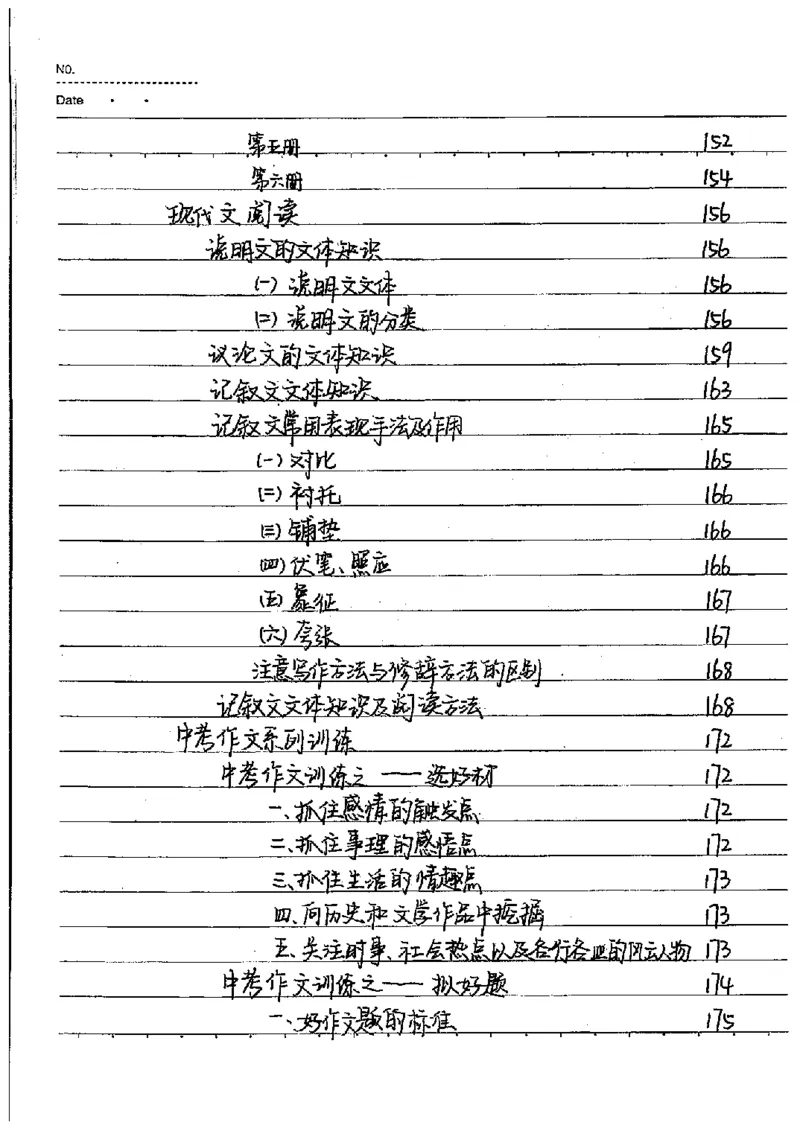 NO.
Date
第五册 152
第六册 154
现代文阅读 156
说明文的文体知识 156
(一)说明文文体 156
(二)说明文的分类 156
议论文的文体知识 159
记叙文文体知识 163
记叙文常用表现手法及作用 165
(一)对比 165
(二)衬托 166
(三)铺垫 166
(四)伏笔、照应 166
(五)象征 167
(六)夸张 167
注意写作方法与修辞方法的区别 168
记叙文文体知识及阅读方法 168
中考作文系列训练 172
中考作文训练之——选好材 172
一、抓住感情的触发点 172
二、抓住事理的感悟点 172
三、抓住生活的情趣点 173
四、向历史和文学作品中挖掘 173
五、关注时事、社会热点以及各行各业的风云人物 173
中考作文训练之——拟好题 174
一、好作文题的标准 175